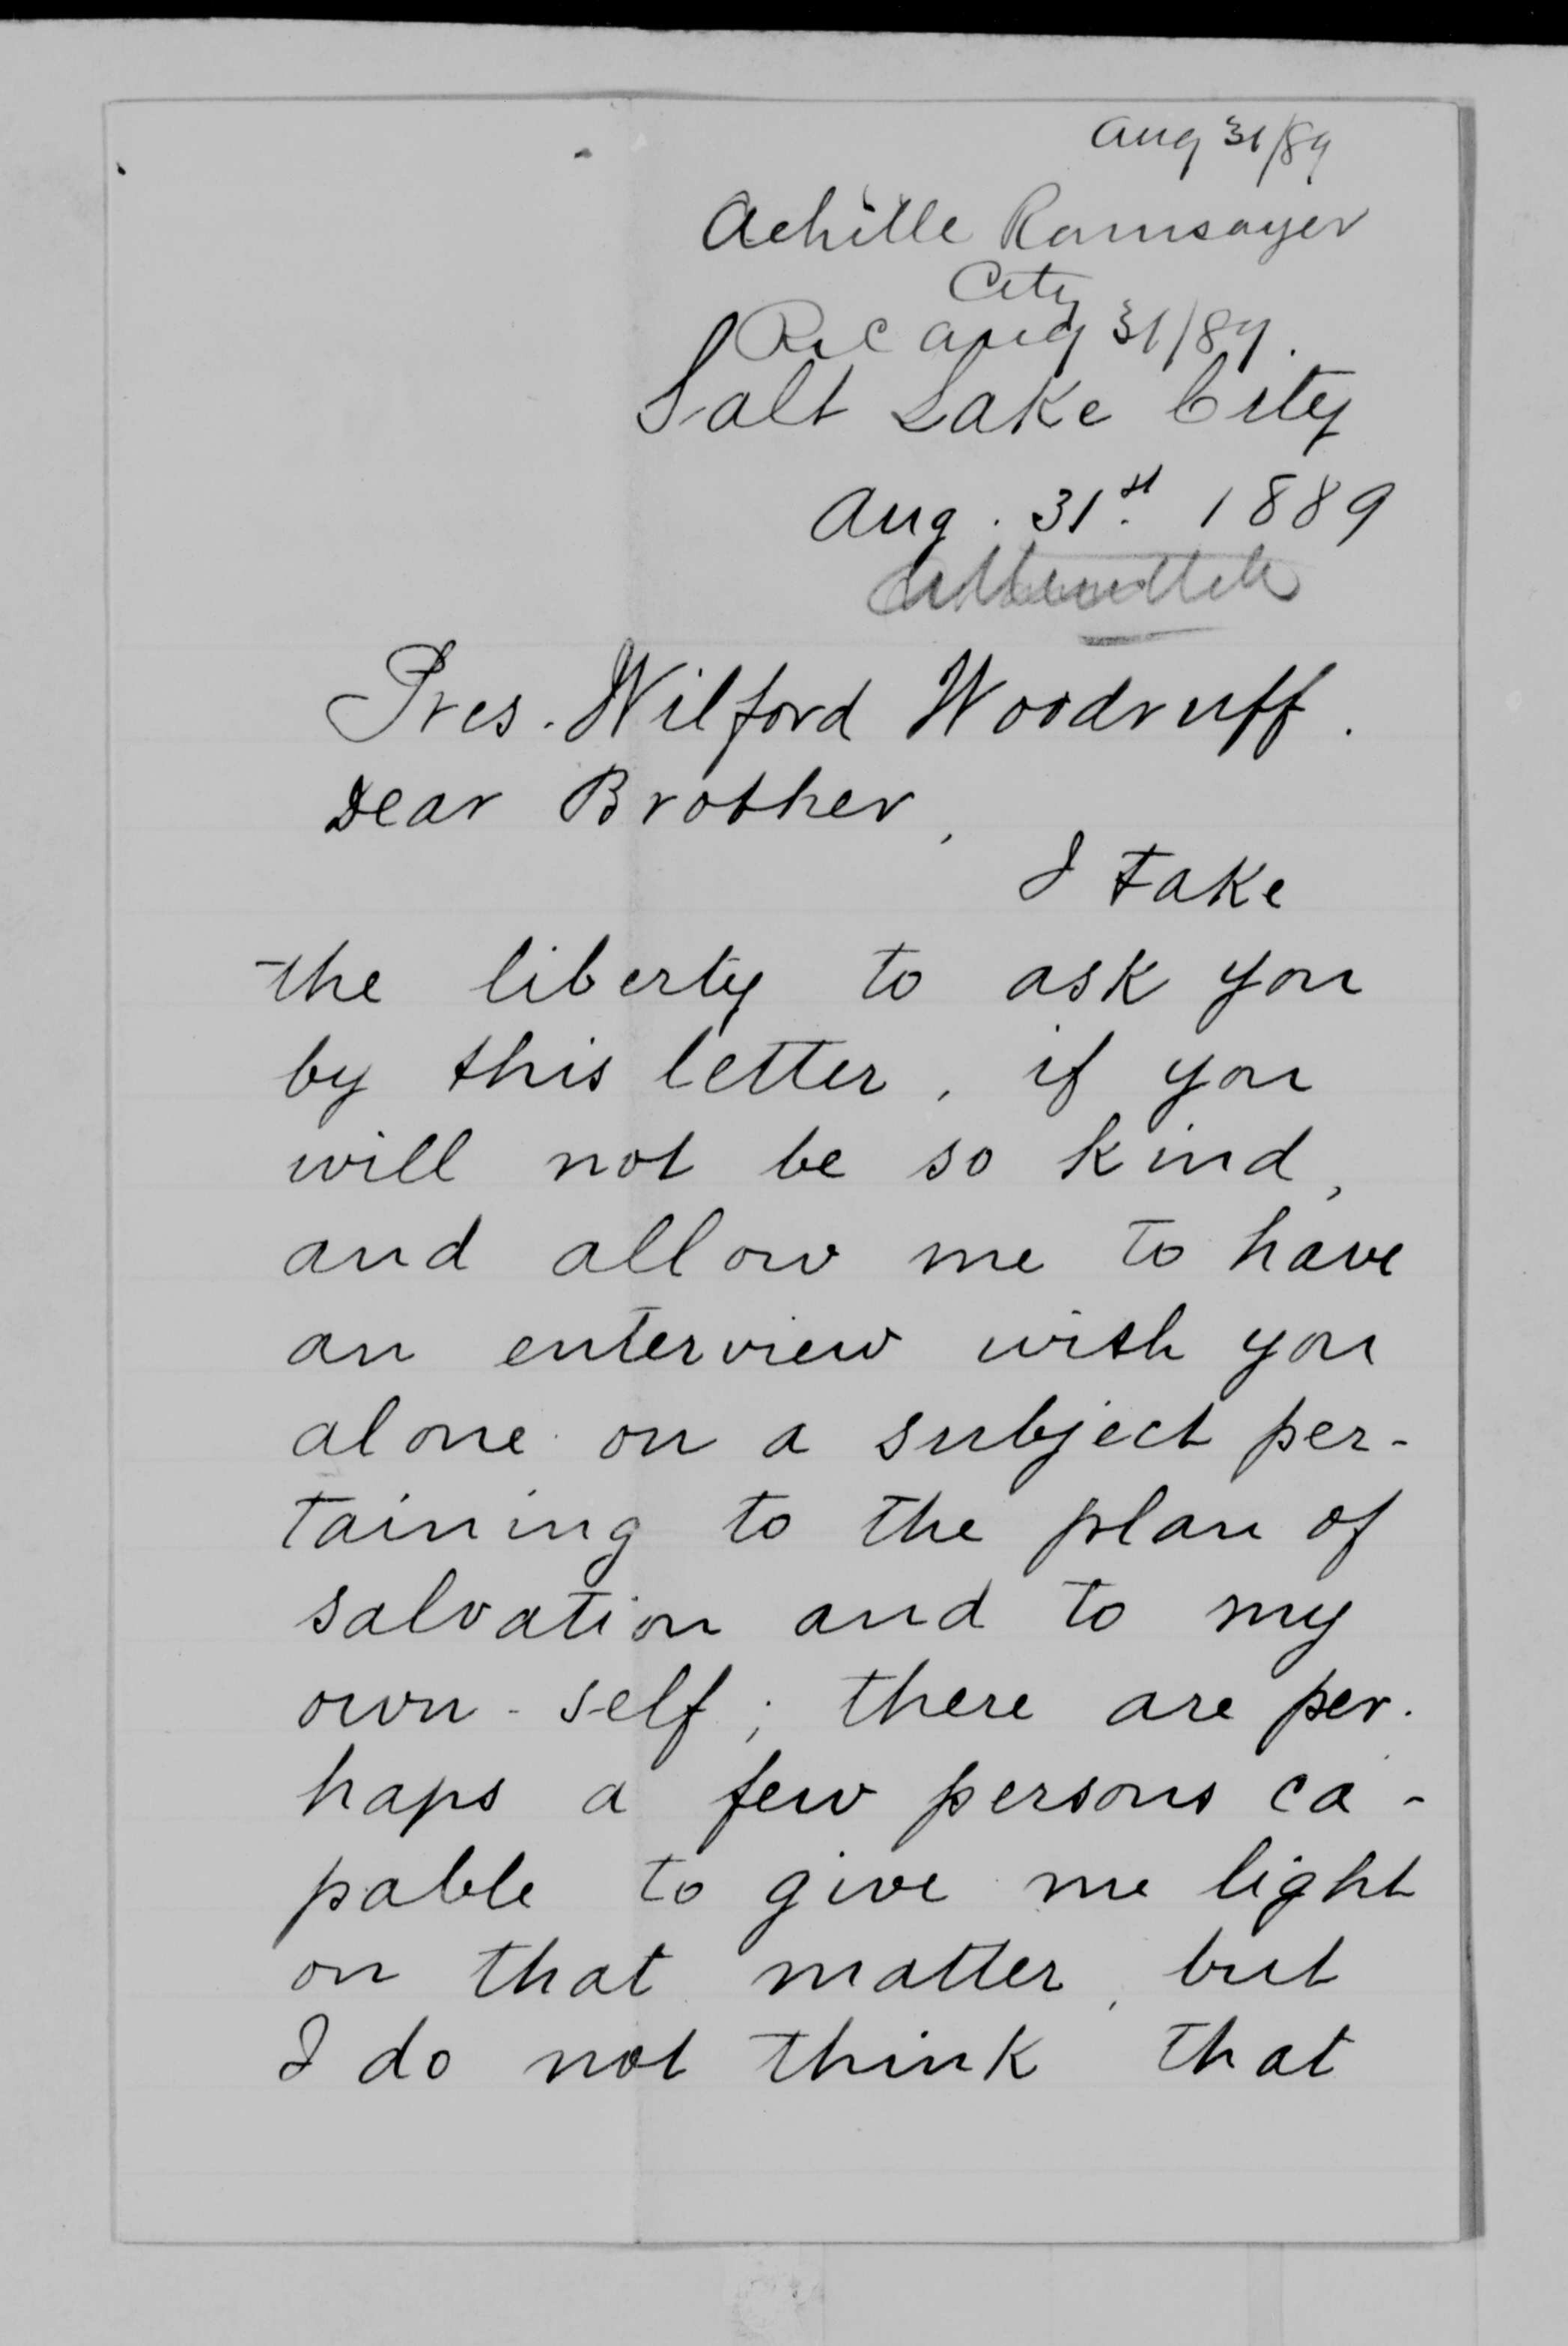 Aug 31/89
Achille Ramsayer
City
Rec Aug 31/89.
Salt Lake City
Aug. 31st. 1889
Pres. Wilford Woodruff.
Dear Brother,
I take
the liberty to ask you
by this letter, if you
will not be so kind,
and allow me to have
an enterview with you
alone on a subject per-
taining to the plan of
salvation and to my
own-self; there are per-
haps a few persons ca-
pable to give me light
on that matter, but
I do not think that